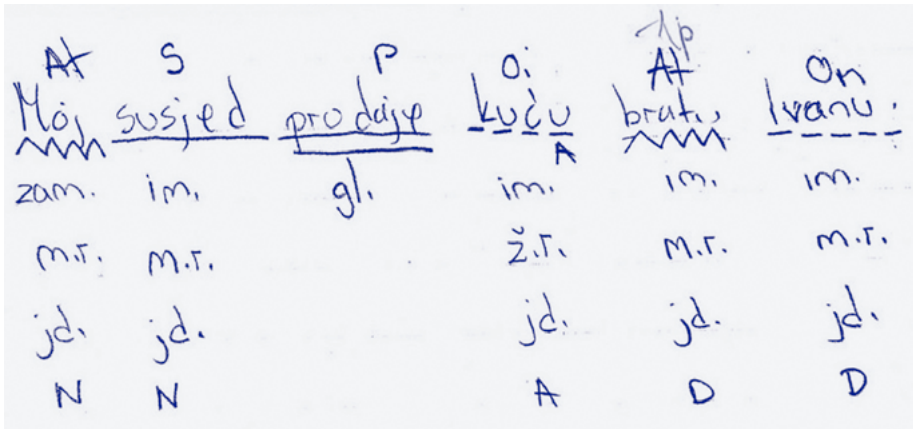 Ap
At S P Oi At On
Moj susjed prodaje kuću bratu Ivanu.
A
zam. im. gl. im. im. im.
m.r. m.r. ž.r. m.r. m.r.
jd. jd. jd. jd. jd.
N N A D D